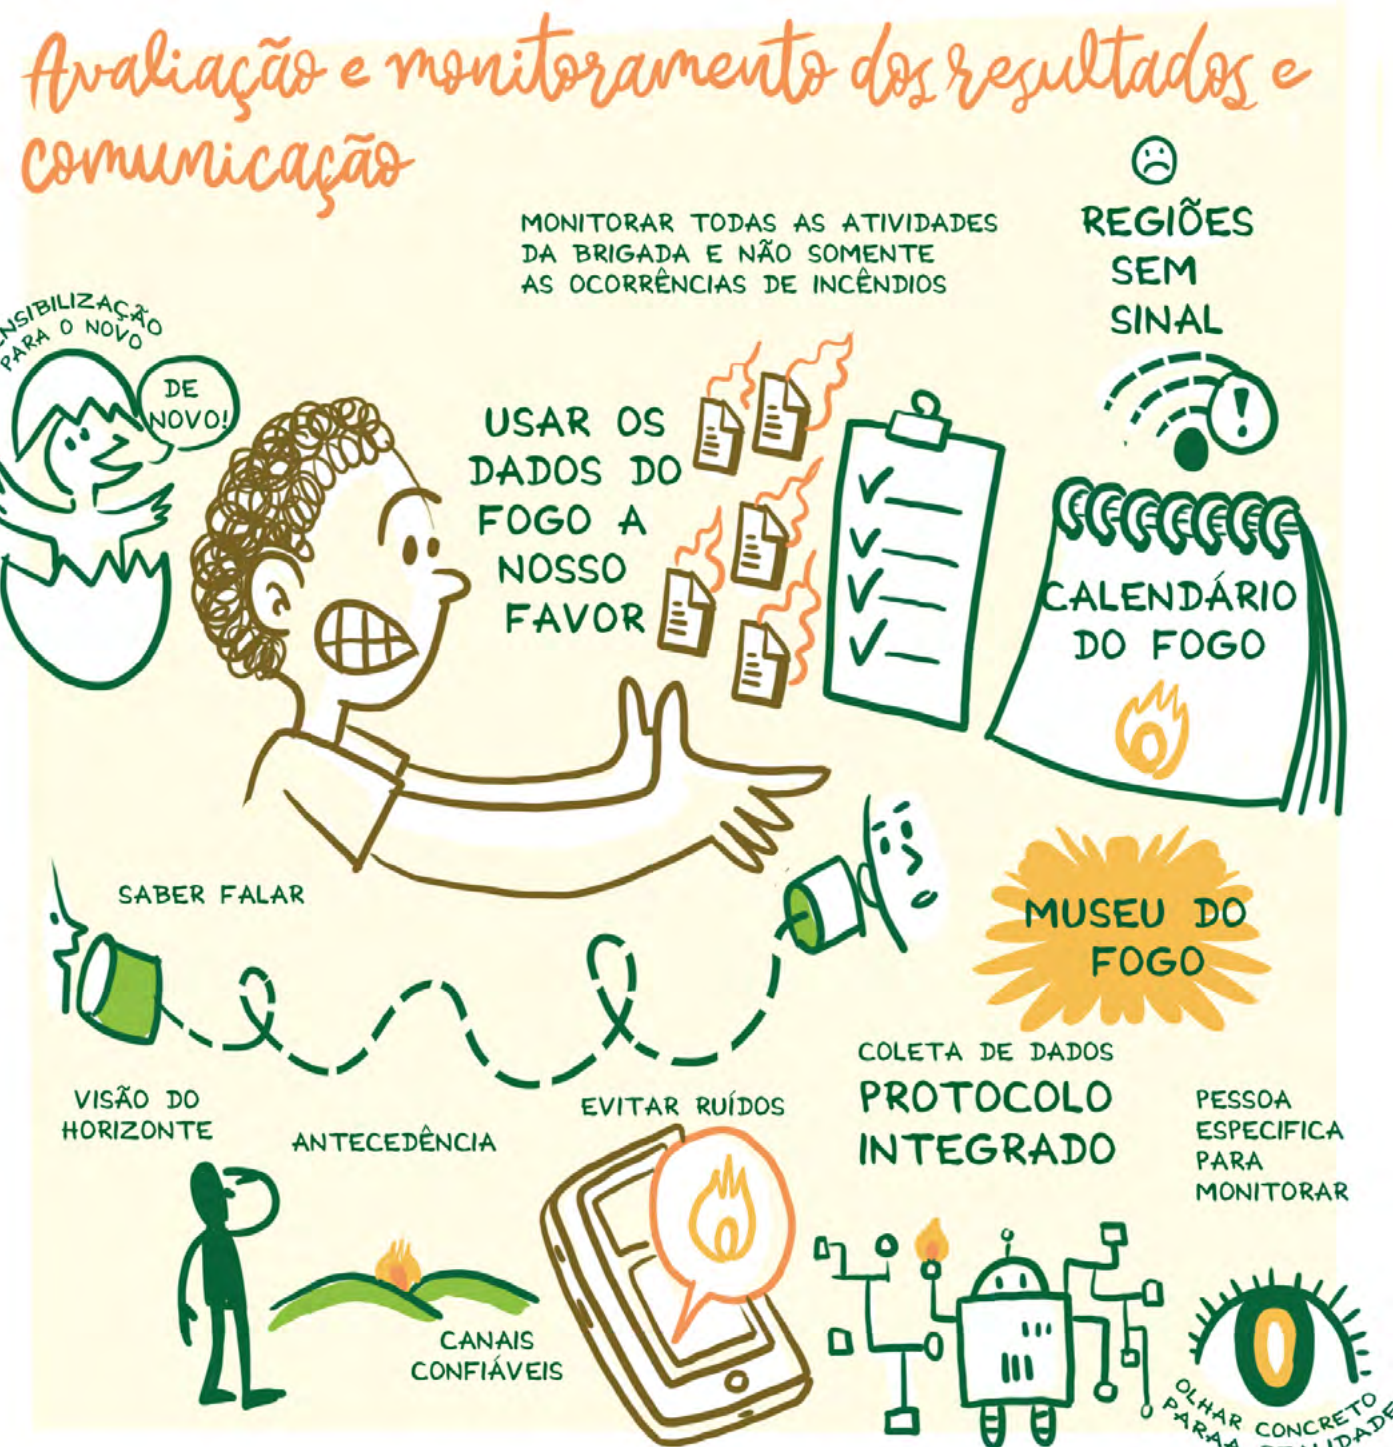 Avaliação e monitoramento dos resultados e
comunicação
MONITORAR TODAS AS ATIVIDADES
DA BRIGADA E NÃO SOMENTE
AS OCORRÊNCIAS DE INCÊNDIOS
REGIÕES
SEM
SINAL
PARA O NOVO
DE
NOVO!
USAR OS
DADOS DO
FOGO A
NOSSO
FAVOR
CALENDÁRIO
DO FOGO
SABER FALAR
MUSEU DO
FOGO
VISÃO DO
HORIZONTE
ANTECEDÊNCIA
CANAIS
CONFIÁVEIS
EVITAR RUÍDOS
COLETA DE DADOS
PROTOCOLO
INTEGRADO
PESSOA
ESPECIFICA
PARA
MONITORAR
OLHAR CONCRETO
PARA A